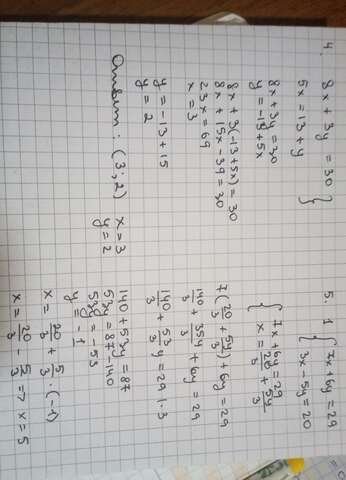 4. 8x + 3y = 30
5x = 13 + y
8x + 3y = 30
y = -13 + 5x
8x + 3(-13 + 5x) = 30
8x + 15x - 39 = 30
23x = 69
x = 3
y = -13 + 15
y = 2
Ответ: (3; 2)
x = 3
y = 2
5. 1 { 7x + 6y = 29
3x - 5y = 20
{ 7x + 6y = 29
x = 20/3 + 5y/3
7(20/3 + 5y/3) + 6y = 29
140/3 + 35y/3 + 6y = 29
140/3 + 53/3 y = 29 | · 3
140 + 53y = 87
53y = 87 - 140
53y = -53
y = -1
x = 20/3 + 5/3 · (-1)
x = 20/3 - 5/3 => x = 5